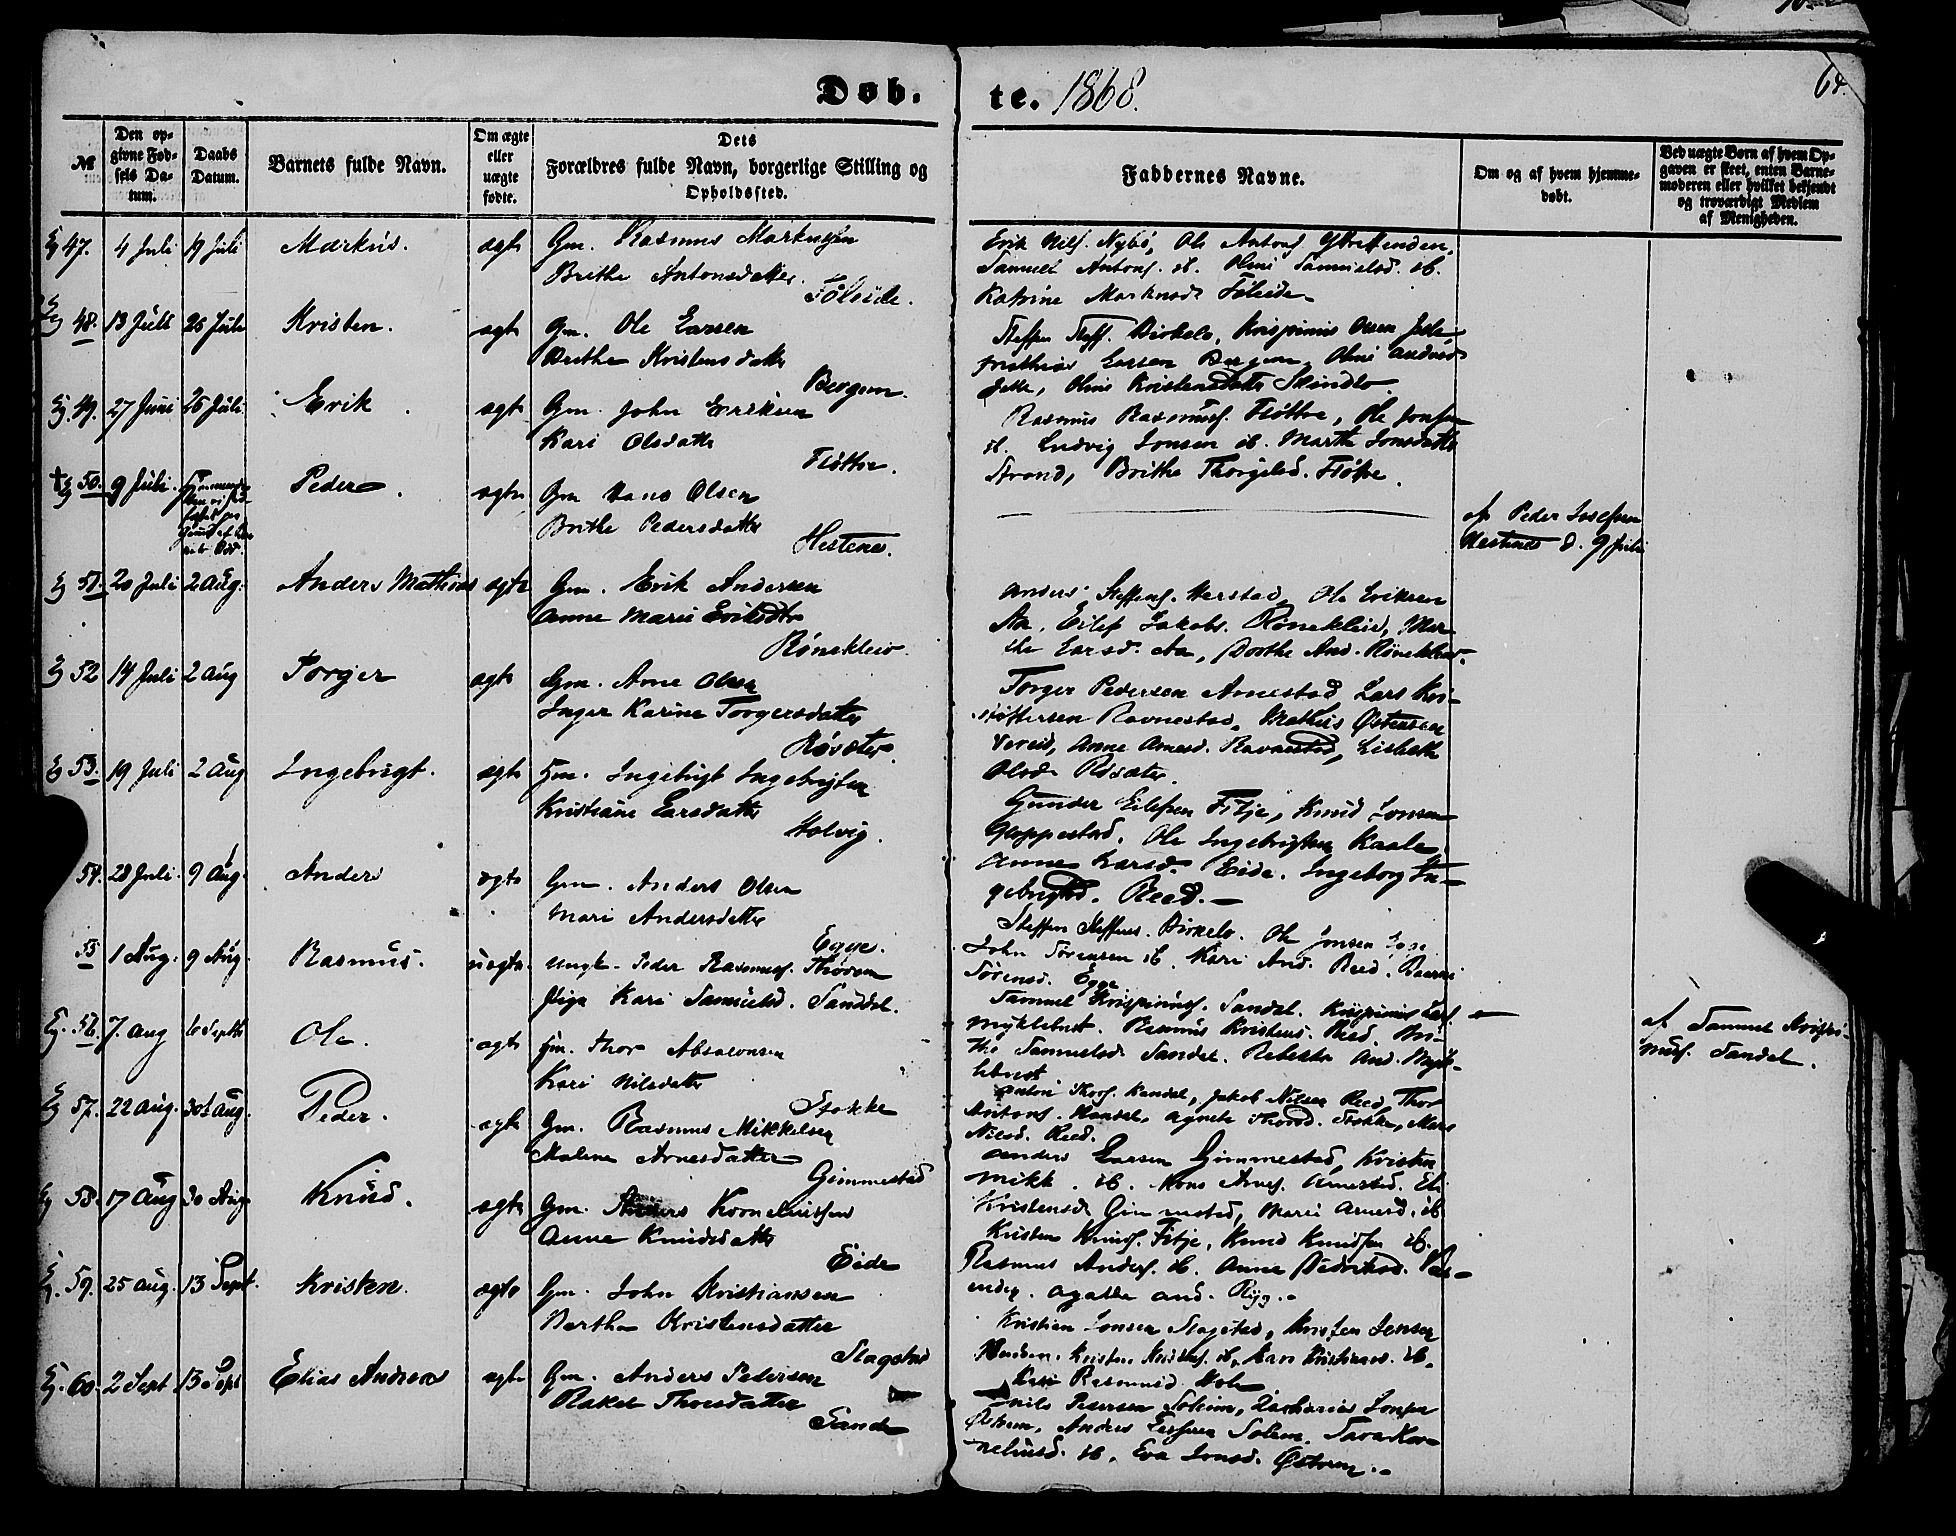 Døb. te. 1868.
№
Den opgivne Fødsels Datum.
Daabs Datum.
Barnets fulde Navn.
Om ægte eller uægte fødte.
Dets Forældres fulde Navn, borgerlige Stilling og Opholdssted.
Faddernes Navne.
Om og af hvem hjemmedøbt.
Ved uægte Børn af hvem Opgaven er skeet, enten Barnemoderen eller hvilket bekjendt og troværdigt Medlem af Menigheden.
47. 4 Juli 19 Juli Markus. ægte Gm. Rasmus Markussen
Brithe Antonsdatter
Föleide.
Erik Nils. Nybö, Ole Antons.
Samuel Antons. ib. Oline Samuelsd. ib.
Katrine Markusd. Föleide
48. 13 Juli 26 Juli Kristen. ægte Gm. Ole Larsen
Brithe Kristensdatter
Bergem.
Steffen Steff. Birkelo, Krispinus Olsen
Mathias Larsen Bergem, Oline Andersd
Oline Kristensdatter
49. 27 Juni 26 Juli Erik. ægte Gm. John Eriksen
Kari Olsdatter
Flöttre.
Rasmus Rasmuss. Flöttre, Ole Jonsen
ib. Ludvig Jonsen ib. Marthe Jonsdatter
Strand, Brithe Thorgilsd. Flötre.
50. 9 Juli. Peder. ægte Gm Hans Olsen
Brithe Pedersdatter
Hestenes.
af Peder Josefsen
Hestenes d. 9 Juli
51. 20 Juli 2 Aug. Anders Mathias ægte Gm. Erik Andersen
Anne Marie Eriksdtr
Rönekleiv.
Anders Steffens. Herstad, Ole Eriksen
Aa, Eilef Jakobs. Rönekleiv, Mar
the Larsd. Aa, Dorthe And. Rönekleiv.
52 14 Juli 2 Aug Torger ægte Gm. Arne Olsen
Inger Karine Torgersdatter
Rösæter.
Torger Pedersen Arnestad Lars Kri-
stoffersen Ravnestad, Mathias Østensen
Vereid, Anne Arnesd. Ravnestad, Lisbeth
Olsd. Rösæter.
53. 19 Juli 2 Aug Ingebrigt. ægte Gm. Ingebrigt Ingebrigtsen
Kristiane Larsdatter
Holvig.
Gunder Eilefsen Fitje, Knud Jonsen
Gloppestad, Ole Ingebrigtsen Kaale
Anne Larsd. Eide. Ingeborg In-
gebrigtsd. Reed.
54. 28 Juli. 9 Aug. Anders ægte Gm. Anders Olsen
Mari Andersdatter
Egge.
Steffen Steffens. Birkelo. Ole Jonsen Egge
John Sörensen ib. Kari And. Reed.
Sörensd. Egge
55 1 Aug. 9 Aug. Rasmus. uægte. Ungk. Peder Rasmuss.
Pige Kari Samuelsd. Sandal.
Samuel Krispinuss. Sandal. Krispinus Lars.
Myklebust. Rasmus Kristens. Reed. Bri-
the Samuelsd. Sandal. Rebekka And. Mykl-
lebust
af Samuel Krispi-
nuss. Sandal.
56. 7. Aug 6 Septb Ole. ægte Gm. Thor Absalonsen
Kari Nilsdatter
Stokke
Antoni Thors. Kandal, Jakob Nilsen Reed, Thor
Antons. Kandal, Agnete Thorsd. Stokke, Mari
Nilsd. Reed.
57. 22 Aug. 30t Aug. Peder. ægte Gm. Rasmus Mikkelsen
Malene Arnesdatter
Gimmestad
Anders Larsen Gimmestad, Kristen
Mikk. ib. Mons Arnes. Arnestad. Eli
Kristensd. Gimmestad, Marie Arnesd. ib
58. 17 Aug 30 Aug Knud. ægte Gm. Anders Korneliussen
Anne Knudsdatter
Eide
Kristen Knuds. Fitje, Knud Knudsen ib.
Rasmus Anders. ib. Anne
Agatha And. Rygg.
59. 25 Aug. 13 Sept. Kristen. ægte Gm. John Kristiansen
Berthe Kristensdatter
Slagstad
Kristian Jonsen Slagstad, Kristen Jensen
Kari Kristians. ib.
Kari Rasmusd. Hole
60. 2 Sept 13 Sept Elias Andreas ægte Gm. Anders Pedersen
Rakel Thorsdatter
Sande
Nils Pedersen Solem, Zacharias Jonsen
Østrem, Anders Solem. Sara Kor-
neliusd. ib. Eva Jonsd. Østrem.